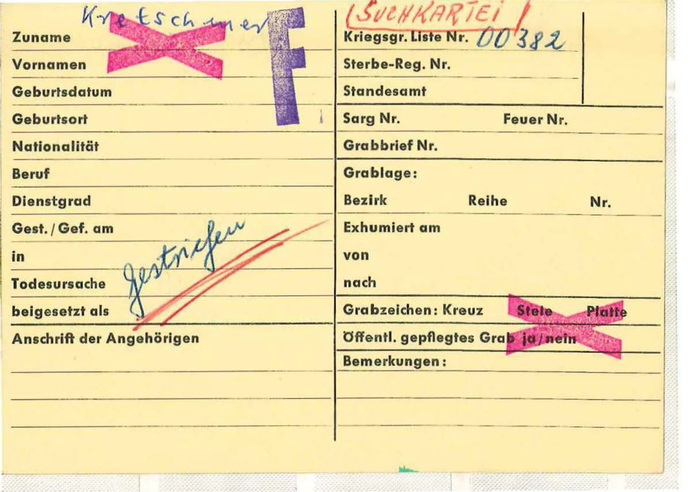 Kretschmer
Zuname
Vornamen
F
Geburtsdatum
Geburtsort
Nationalität
Beruf
Dienstgrad
Gest./Gef. am
in
Todesursache
gestrichen
beigesetzt als
Anschrift der Angehörigen
(SUCHKARTEI)
Kriegsgr. Liste Nr. 00382
Sterbe-Reg. Nr.
Standesamt
Sarg Nr. Feuer Nr.
Grabbrief Nr.
Grablage:
Bezirk Reihe Nr.
Exhumiert am
von
nach
Grabzeichen: Kreuz Stele Platte
Öffentl. gepflegtes Grab ja/nein
Bemerkungen: